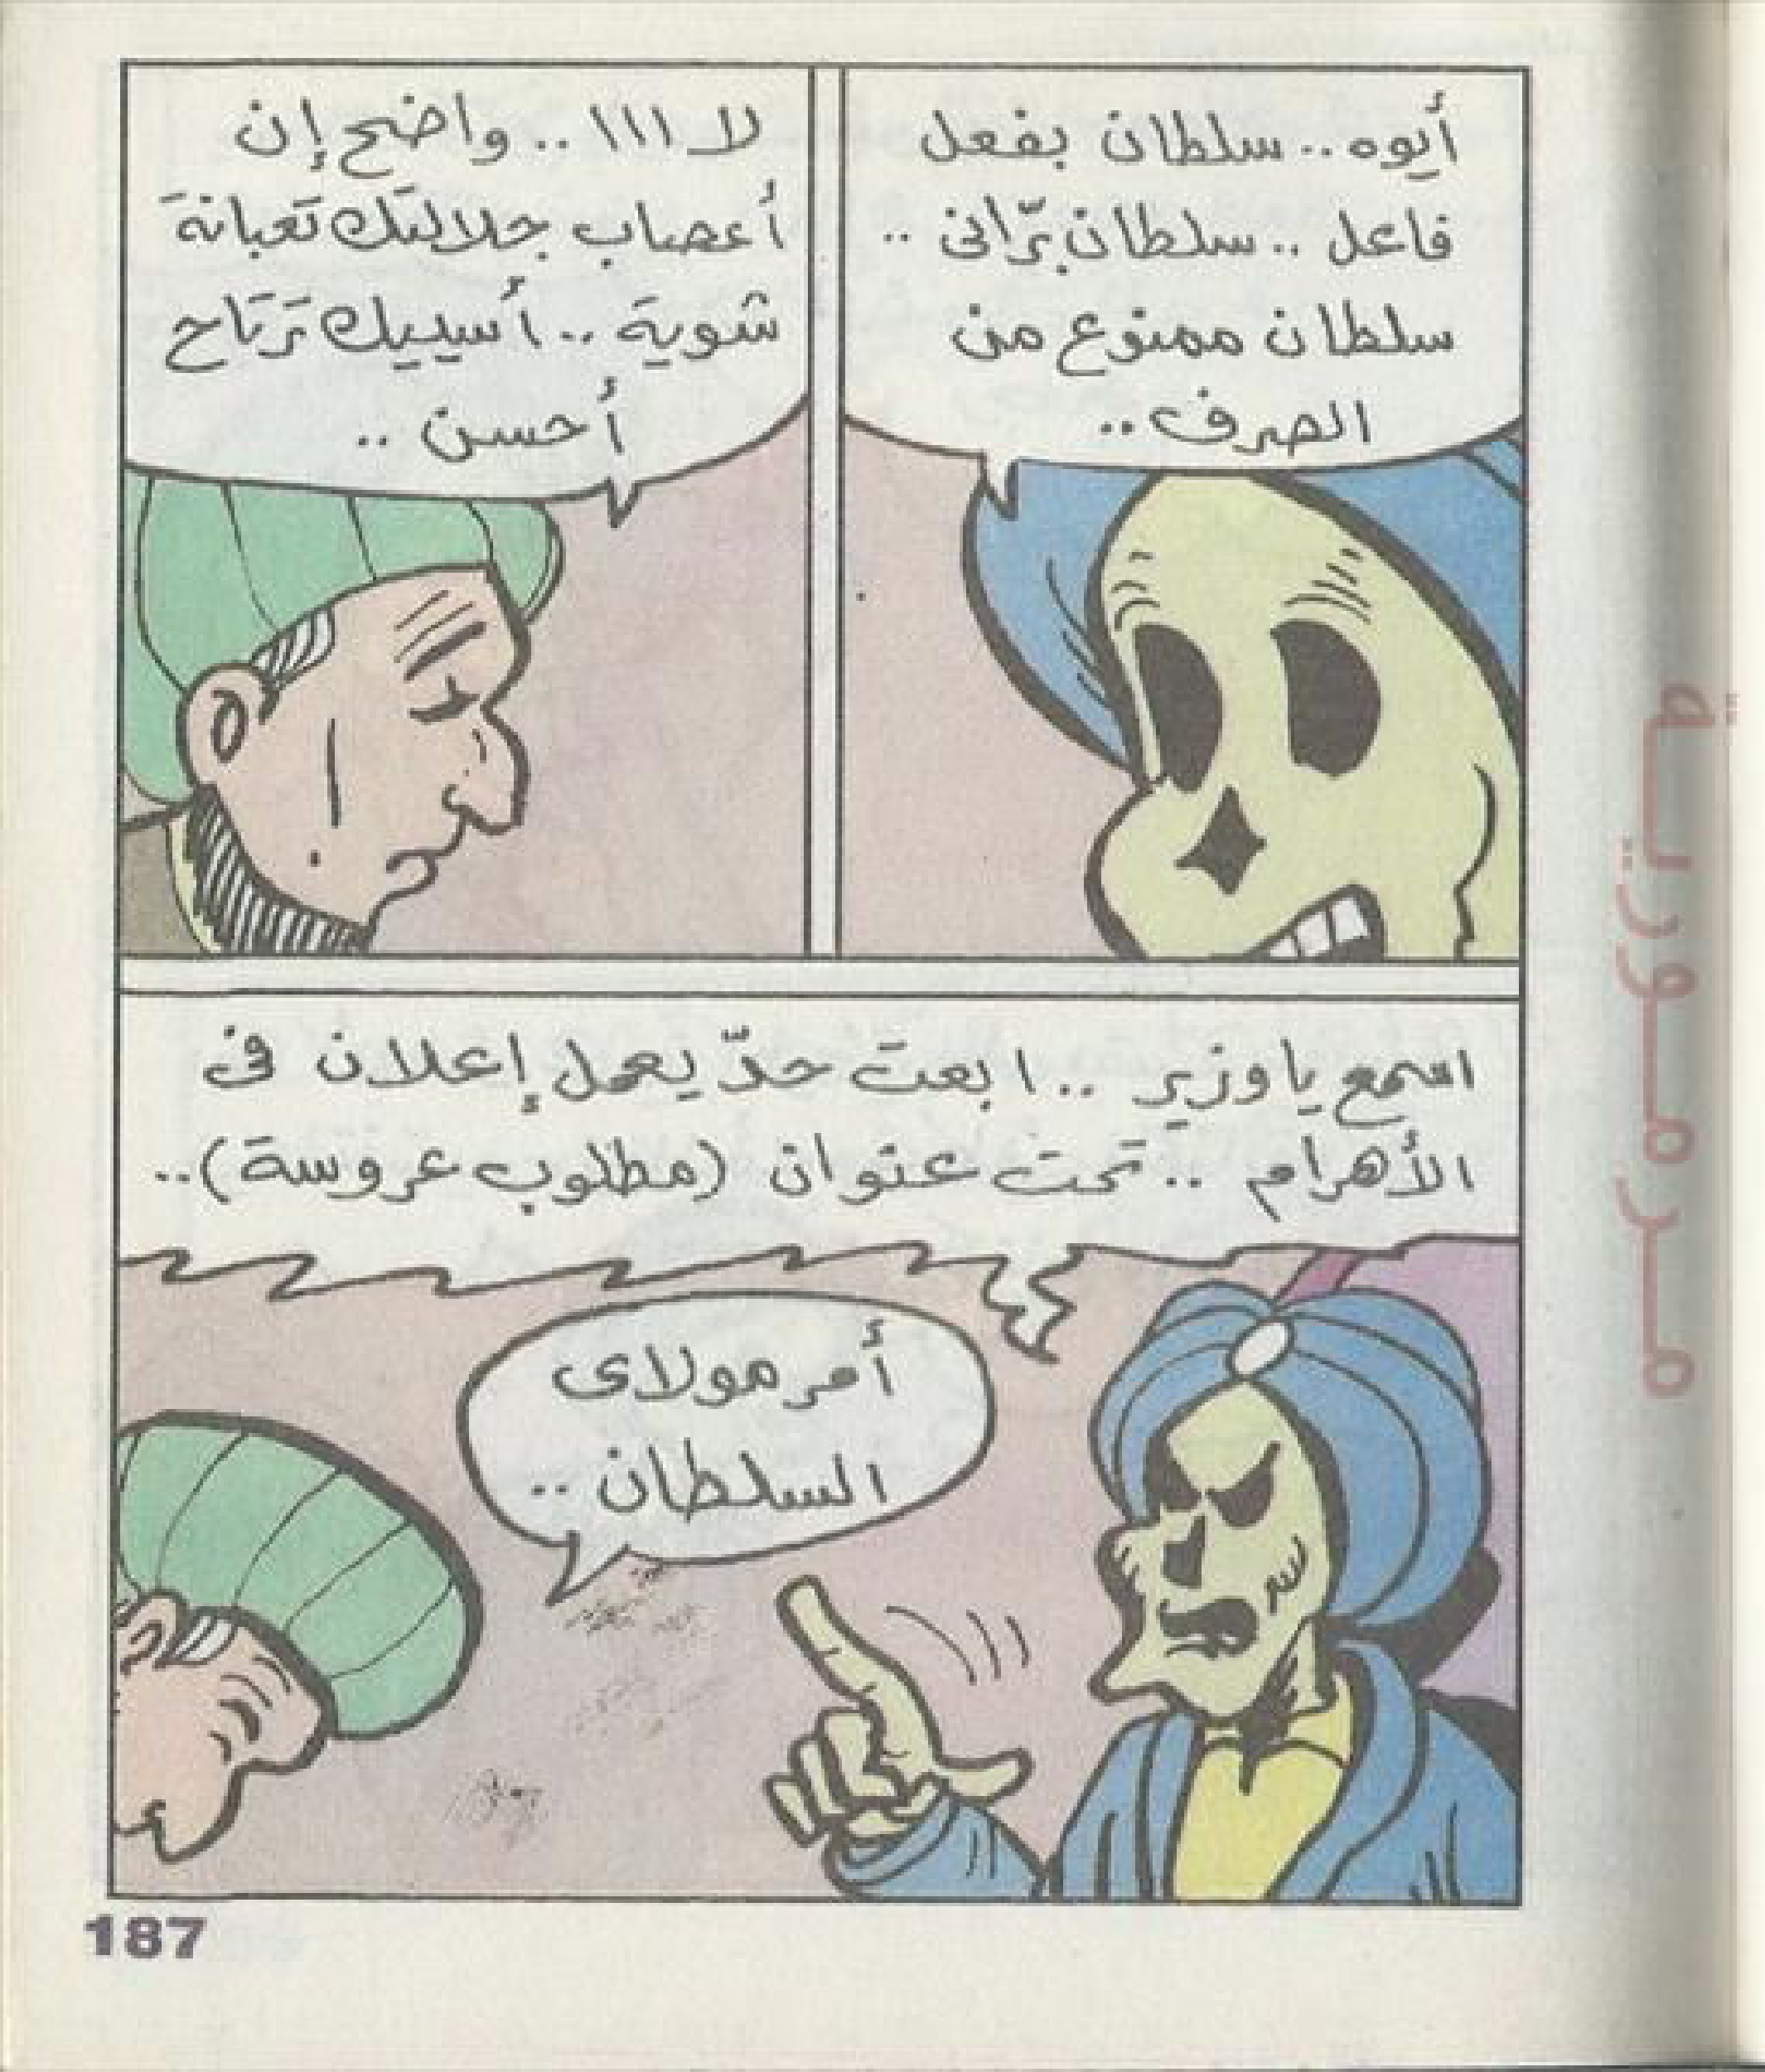 أيوه.. سلطان بفعل
فاعل .. سلطان برّانى ..
سلطان ممنوع من
الصرف..
لا ١١١ .. واضح إن
أعصاب جلالتك تعبانة
شوية .. أسيبك ترتاح
أحسن ..
اسمع يا وزير .. ابعت حدّ يعمل إعلان فى
الأهرام .. تحت عنوان (مطلوب عروسة)..
أمر مولاى
السلطان ..
187
مرمورية